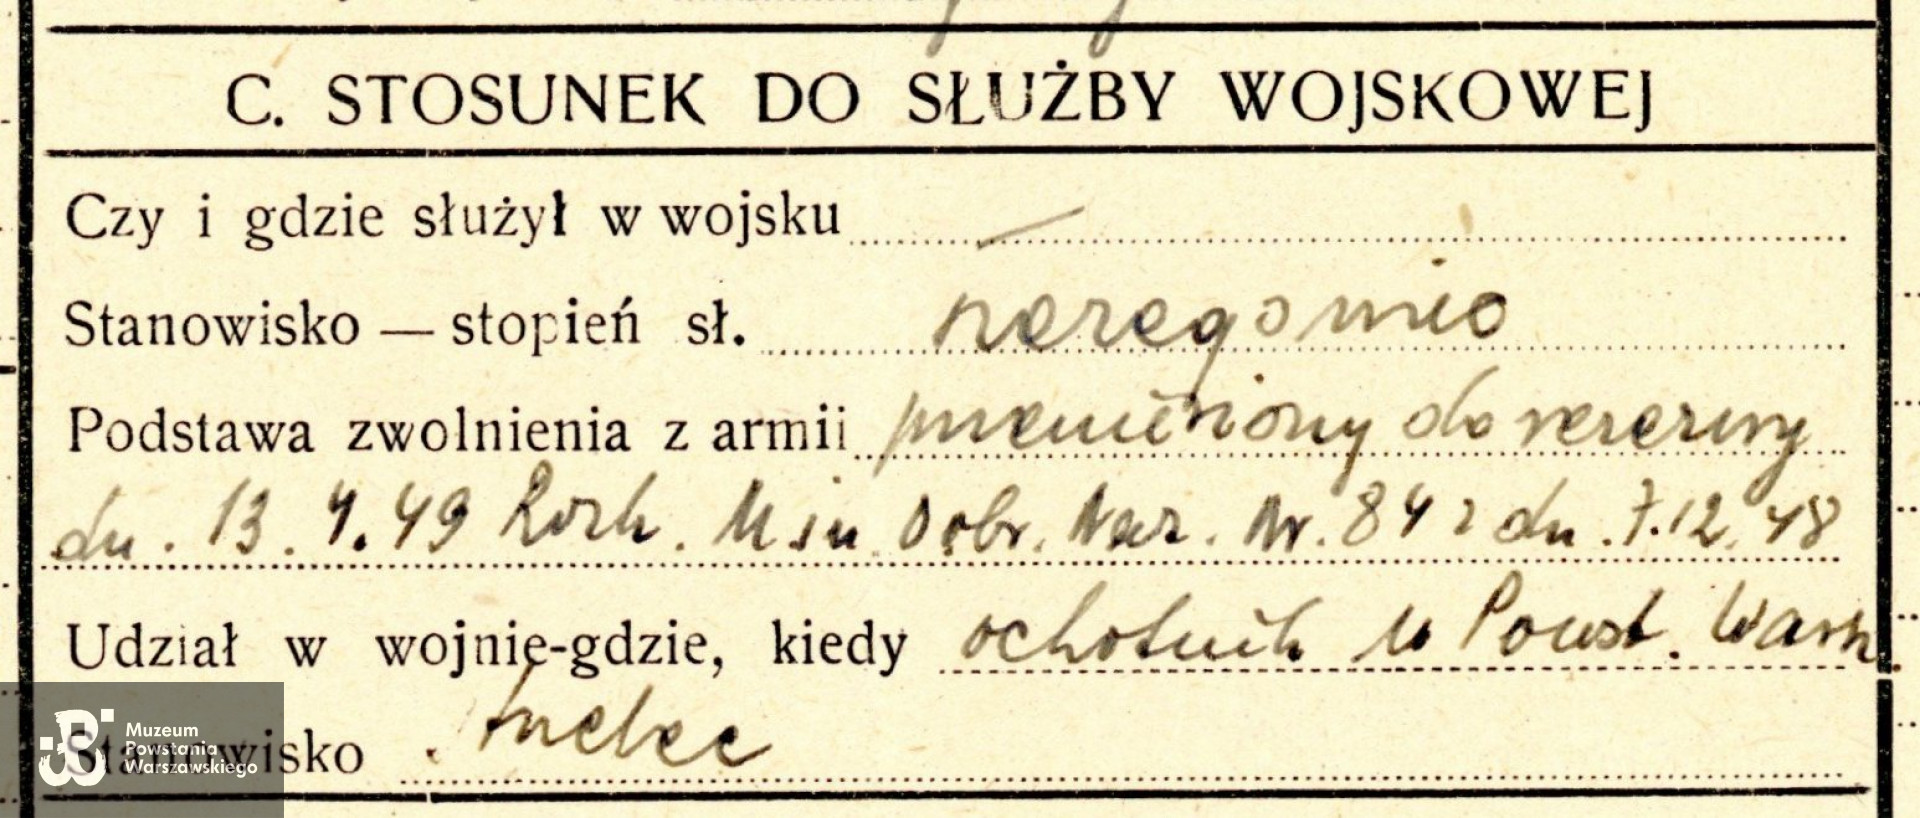 C. STOSUNEK DO SŁUŻBY WOJSKOWEJ
Czy i gdzie służył w wojsku —
Stanowisko — stopień sł. szeregowiec
Podstawa zwolnienia z armii przeniesiony do rezerwy
dn. 13. 4. 49 Rozk. Min. Obr. Nar. Nr. 84 z dn. 7.12.48
Udział w wojnie-gdzie, kiedy ochotnik w Powst. Warsz.
Stanowisko strzelec
Muzeum
Powstania
Warszawskiego